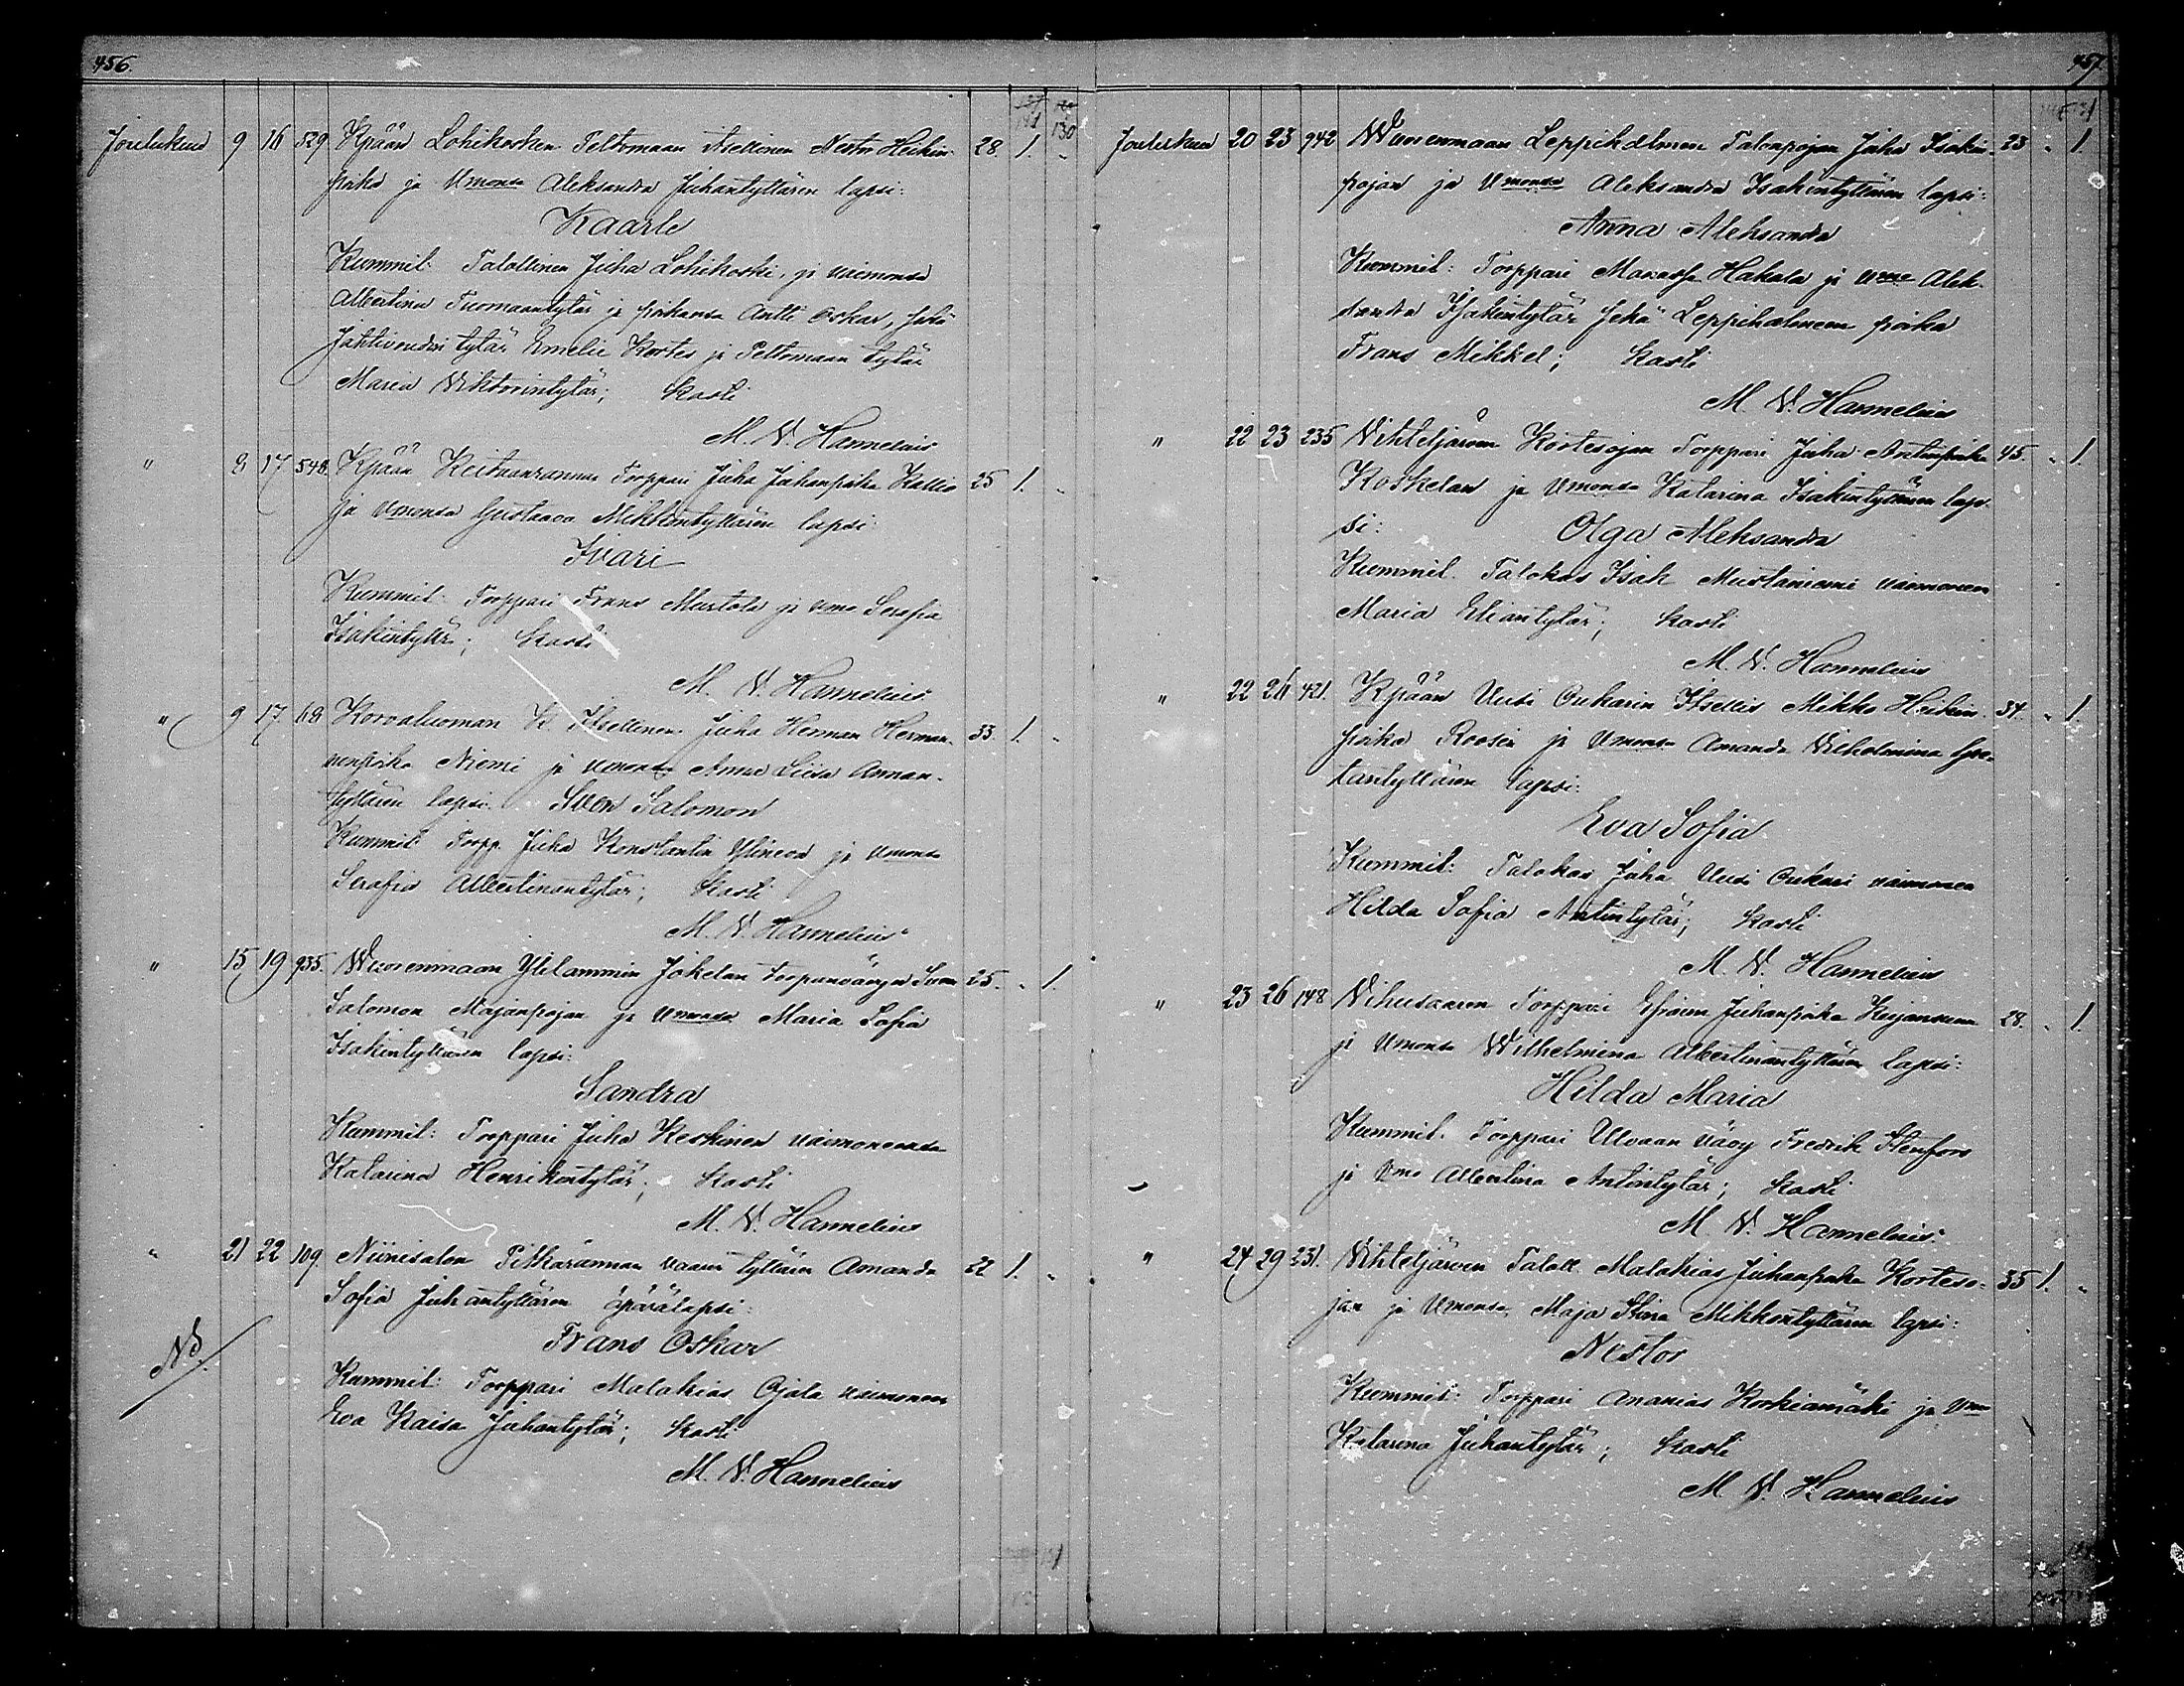 456.
130
Joulukuu 9 16 529 Kpään Lohikosken Peltomaan Itsellinen Nestor Heikin- 28. 1. „
poika ja Vmonsa Aleksandra Juhantyttären lapsi:
Kaarle
Kummit: Talollinen Juha Lohikoski, ja vaimonsa
Albertina Tuomaantytär ja poikansa Antti Oskar, sekä
Jahtivoudin tytär Emelie Kortes ja Peltomaan tytär
Maria Viktorintytär; Kasti
M. V. Hannelius
" 8 17 548. Kpään Keituanrannan Torppari Juha Juhanpoika Kallio 25 1. „
ja Vmonsa Gustaava Mikkontyttären lapsi:
Iivari
Kummit: Torppari Frans Mustola ja vmo Serafia
Isakintytär; Kasti
M. V. Hannelius
" 9 17 68 Korvaluoman K. Itsellinen Juha Herman Herman- 33. 1. „
ninpoika Niemi ja vmonsa Anna Liisa Annan-
tyttären lapsi. Sven Salomon
Kummit: Torpp. Juha Konstantin Ylineva ja vmonsa
Serafia Albertinantytär; Kasti
M. V. Hannelius
" 15 19 935. Wuorenmaan Ylilammin Jokelan torpanvävyn Sven 25. „ 1.
Salomon Majanpojan ja vmonsa Maria Sofia
Isakintyttären lapsi:
Sandra
Kummit: Torppari Juha Keskinen vaimoneensa
Katarina Henrikintytär; Kasti
M. V. Hannelius
" 21 22 109. Niinisalon Pitkärannan vaarin tyttären Amanda 22 1. „
Sofia Juhantyttären äpärälapsi:
Frans Oskar
Kummit: Torppari Malakias Ojala vaimoneen
Eva Kaisa Juhantytär; Kasti
M. V. Hannelius
457.
131
Joulukuu 20 23 942 Wuorenmaan Leppihalmeen Talonpojan Juha Isakin- 23 „ 1.
pojan ja Vmonsa Aleksandra Isakintyttären lapsi:
Anna Aleksandra
Kummit: Torppari Manasse Hakala ja vmo Alek-
sandra Isakintytär sekä Leppihalmeen poika
Frans Mikkel; Kasti
M. V. Hannelius
" 22 23 235 Vihteljärven Kortesojan Torppari Juha Antinpoika 45. „ 1.
Koskelan ja Vmonsa Katarina Isakintyttären lap-
si: Olga Aleksandra
Kummit. Talokas Isak Mustaniemi vaimoneen
Maria Eliantytär; Kasti
M. V. Hannelius
" 22 26 421. Kpään Uusi Oukarin Itsellis Mikko Heikin- 34. „ 1.
poika Roosin ja Vmonsa Amanda Vilhelmina Gus-
tantyttären lapsi:
Eva Sofia
Kummit: Talokas Juha Uusi Oukari vaimoneen
Hilda Sofia Antintytär; Kasti
M. V. Hannelius
" 23 26 148 Vihusaaren Torppari Efraim Juhanpoika Kujansuun 28. „ 1.
ja Vmonsa Wilhelmina Albertinantyttären lapsi:
Hilda Maria
Kummit. Torppari Ulvaan vävy Fredrik Stenfors
ja Vmo Albertina Antintytär; Kasti
M. V. Hannelius.
" 24 29 231. Vihteljärven Taloll. Malakias Juhanpoika Korteso- 35 1. „
jan ja Vmonsa Maja Stina Mikkontyttären lapsi:
Nestor
Kummit: Torppari Ananias Korkiamäki ja Vmo
Katarina Juhantytär; Kasti
M. V. Hannelius